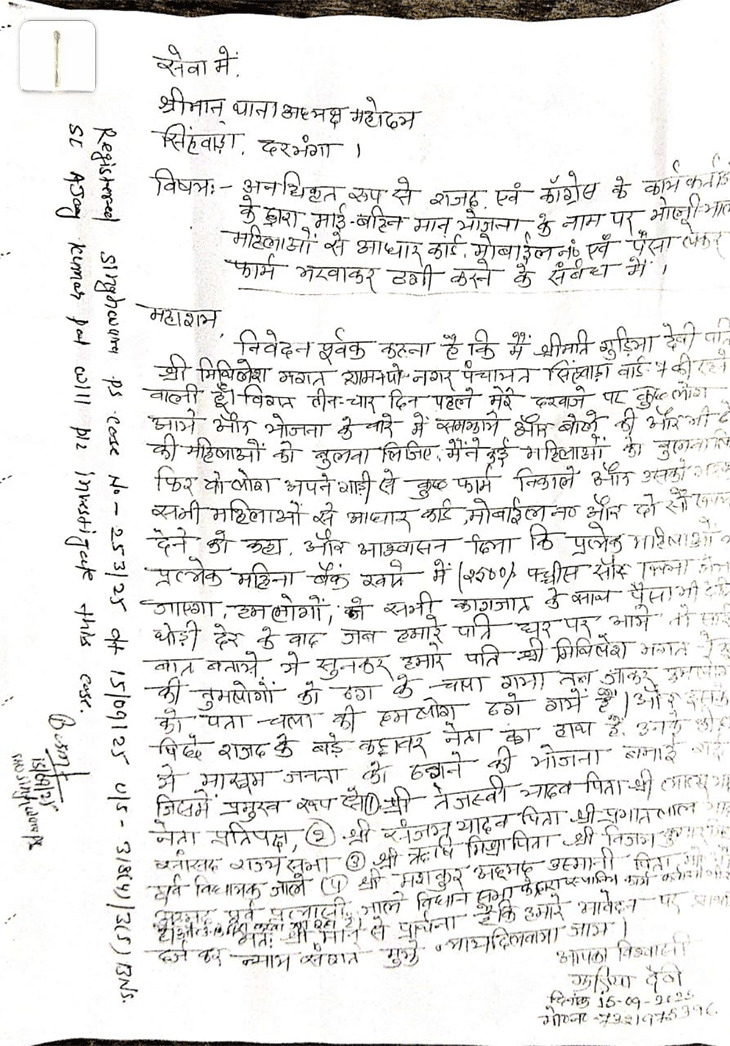 सेवा में,
श्रीमान् थाना अध्यक्ष महोदय
सिंहवाड़ा, दरभंगा ।
विषय:- अनधिकृत रूप से राजद, एवं काँग्रेस के कार्यकर्ताओं
के द्वारा माई-बहिन मान योजना के नाम पर भोली-भाली
महिलाओं से आधार कार्ड, मोबाईल नं० एवं पैसा लेकर
फार्म भरवाकर ठगी करने के संबंध में ।
महाशय,
निवेदन पूर्वक कहना है कि मैं श्रीमति गुड़िया देवी पति
श्री मिथिलेश भगत नगर पंचायत सिंहवाड़ा वार्ड 7 की रहने
वाली हूँ। विगत तीन-चार दिन पहले मेरे दरवाजे पर कुछ लोग
आये और योजना के बारे में समझाये और बोले की और भी
की महिलाओं को बुलवा लिजिए, मैंने कई महिलाओं को
फिर वो लोग अपने गाड़ी से कुछ फार्म निकाले और उसको
सभी महिलाओं से आधार कार्ड, मोबाईल न० और दो सौ
देने को कहा, और आश्वासन दिया कि प्रत्येक महिलाओं
प्रत्येक महिना बैंक खाते में (2500)/- पच्चीस सौ
जाएगा, हमलोगों, ने सभी कागजात के साथ पैसा भी
थोड़ी देर के बाद जब हमारे पति घर पर आये तो
बात बताये ये सुनकर हमारे पति श्री मिथिलेश भगत
की तुमलोगों को ठग के चला गया तब जाकर हमलोग
को पता चला की हमलोग ठगे गये हैं। और इसके
पिछे राजद के बड़े कद्दावर नेता का हाथ है, उनके
ये मासूम जनता को ठगने की योजना बनाई
जिसमें प्रमुख रूप से ① श्री तेजस्वी यादव पिता श्री लालू
नेता प्रतिपक्ष, ② श्री संजय यादव पिता श्री प्रभात लाल
राज्य सभा ③ श्री ऋषि मिश्रा पिता श्री विजय कुमार
पूर्व विधायक जाले ④ श्री मशकुर अहमद उस्मानी पिता
अहमद पूर्व प्रत्याशी जाले विधान सभा
अतः श्रीमान से प्रार्थना है कि हमारे आवेदन पर
दर्ज कर न्याय संगत मुझे न्याय दिलवाया जाय ।
आपका विश्वासी
गुड़िया देवी
दिनांक 15-09-2025
मोo न०-7321975396
Registered Singhwara PS case No - 253/25 dt 15/09/25 U/S - 318(4)/3(5) BNS.
SI Ajay kumar pal will plz investigate this case.
15/9/25
SHO Singhwara PS